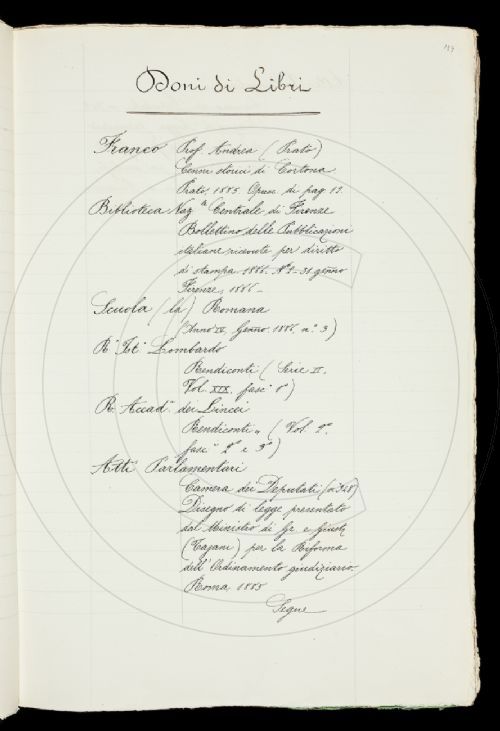 139
Doni di Libri
Franco Prof. Andrea (Prato)
Cenni storici di Cortona
Prato, 1885. Opusc. di pag. 13.
Biblioteca Naz.le Centrale di Firenze
Bollettino delle Pubblicazioni
italiane ricevute per diritto
di stampa 1886. N.° 1 - 31 genno
Firenze, 1886 -
Scuola (la) Romana
(Anno IV. Genno. 1886, n.° 3)
R.° Ist.° Lombardo
Rendiconti (Serie II.
Vol. XIX. fasc.° 1°)
R. Accad.a dei Lincei
Rendiconti „ (Vol. 2°.
fasc.° 2° e 3°)
Atti Parlamentari
Camera dei Deputati (n. 368)
Disegno di legge presentato
dal Ministro di Gr. e Giustz
(Tajani) per la Riforma
dell'Ordinamento giudiziario -
Roma 1885
Segue